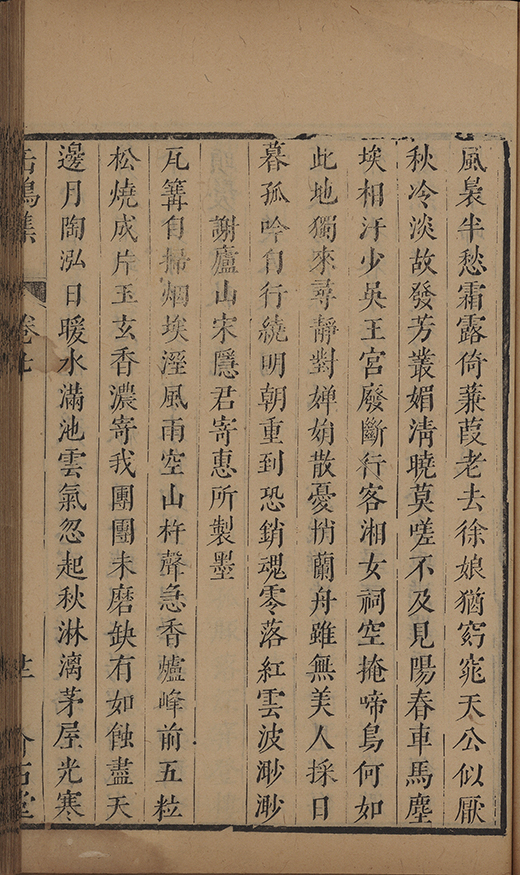 風裊半愁霜露倚蒹葭老去徐娘猶窈窕天公似厭
秋冷淡故發芳叢媚清曉莫嗟不及見陽春車馬塵
埃相汙少吳王宮廢斷行客湘女祠空掩啼鳥何如
此地獨來尋靜對嬋娟散憂悄蘭舟雖無美人採日
暮孤吟自行繞明朝重到恐銷魂零落紅雲波渺渺
謝廬山宋隱君寄惠所製墨
瓦篝自掃烟埃溼風雨空山杵聲急香爐峰前五粒
松燒成片玉玄香濃寄我團團未磨缺有如蝕盡天
邊月陶泓日暖水滿池雲氣忽起秋淋漓茅屋光寒
鳴集 卷